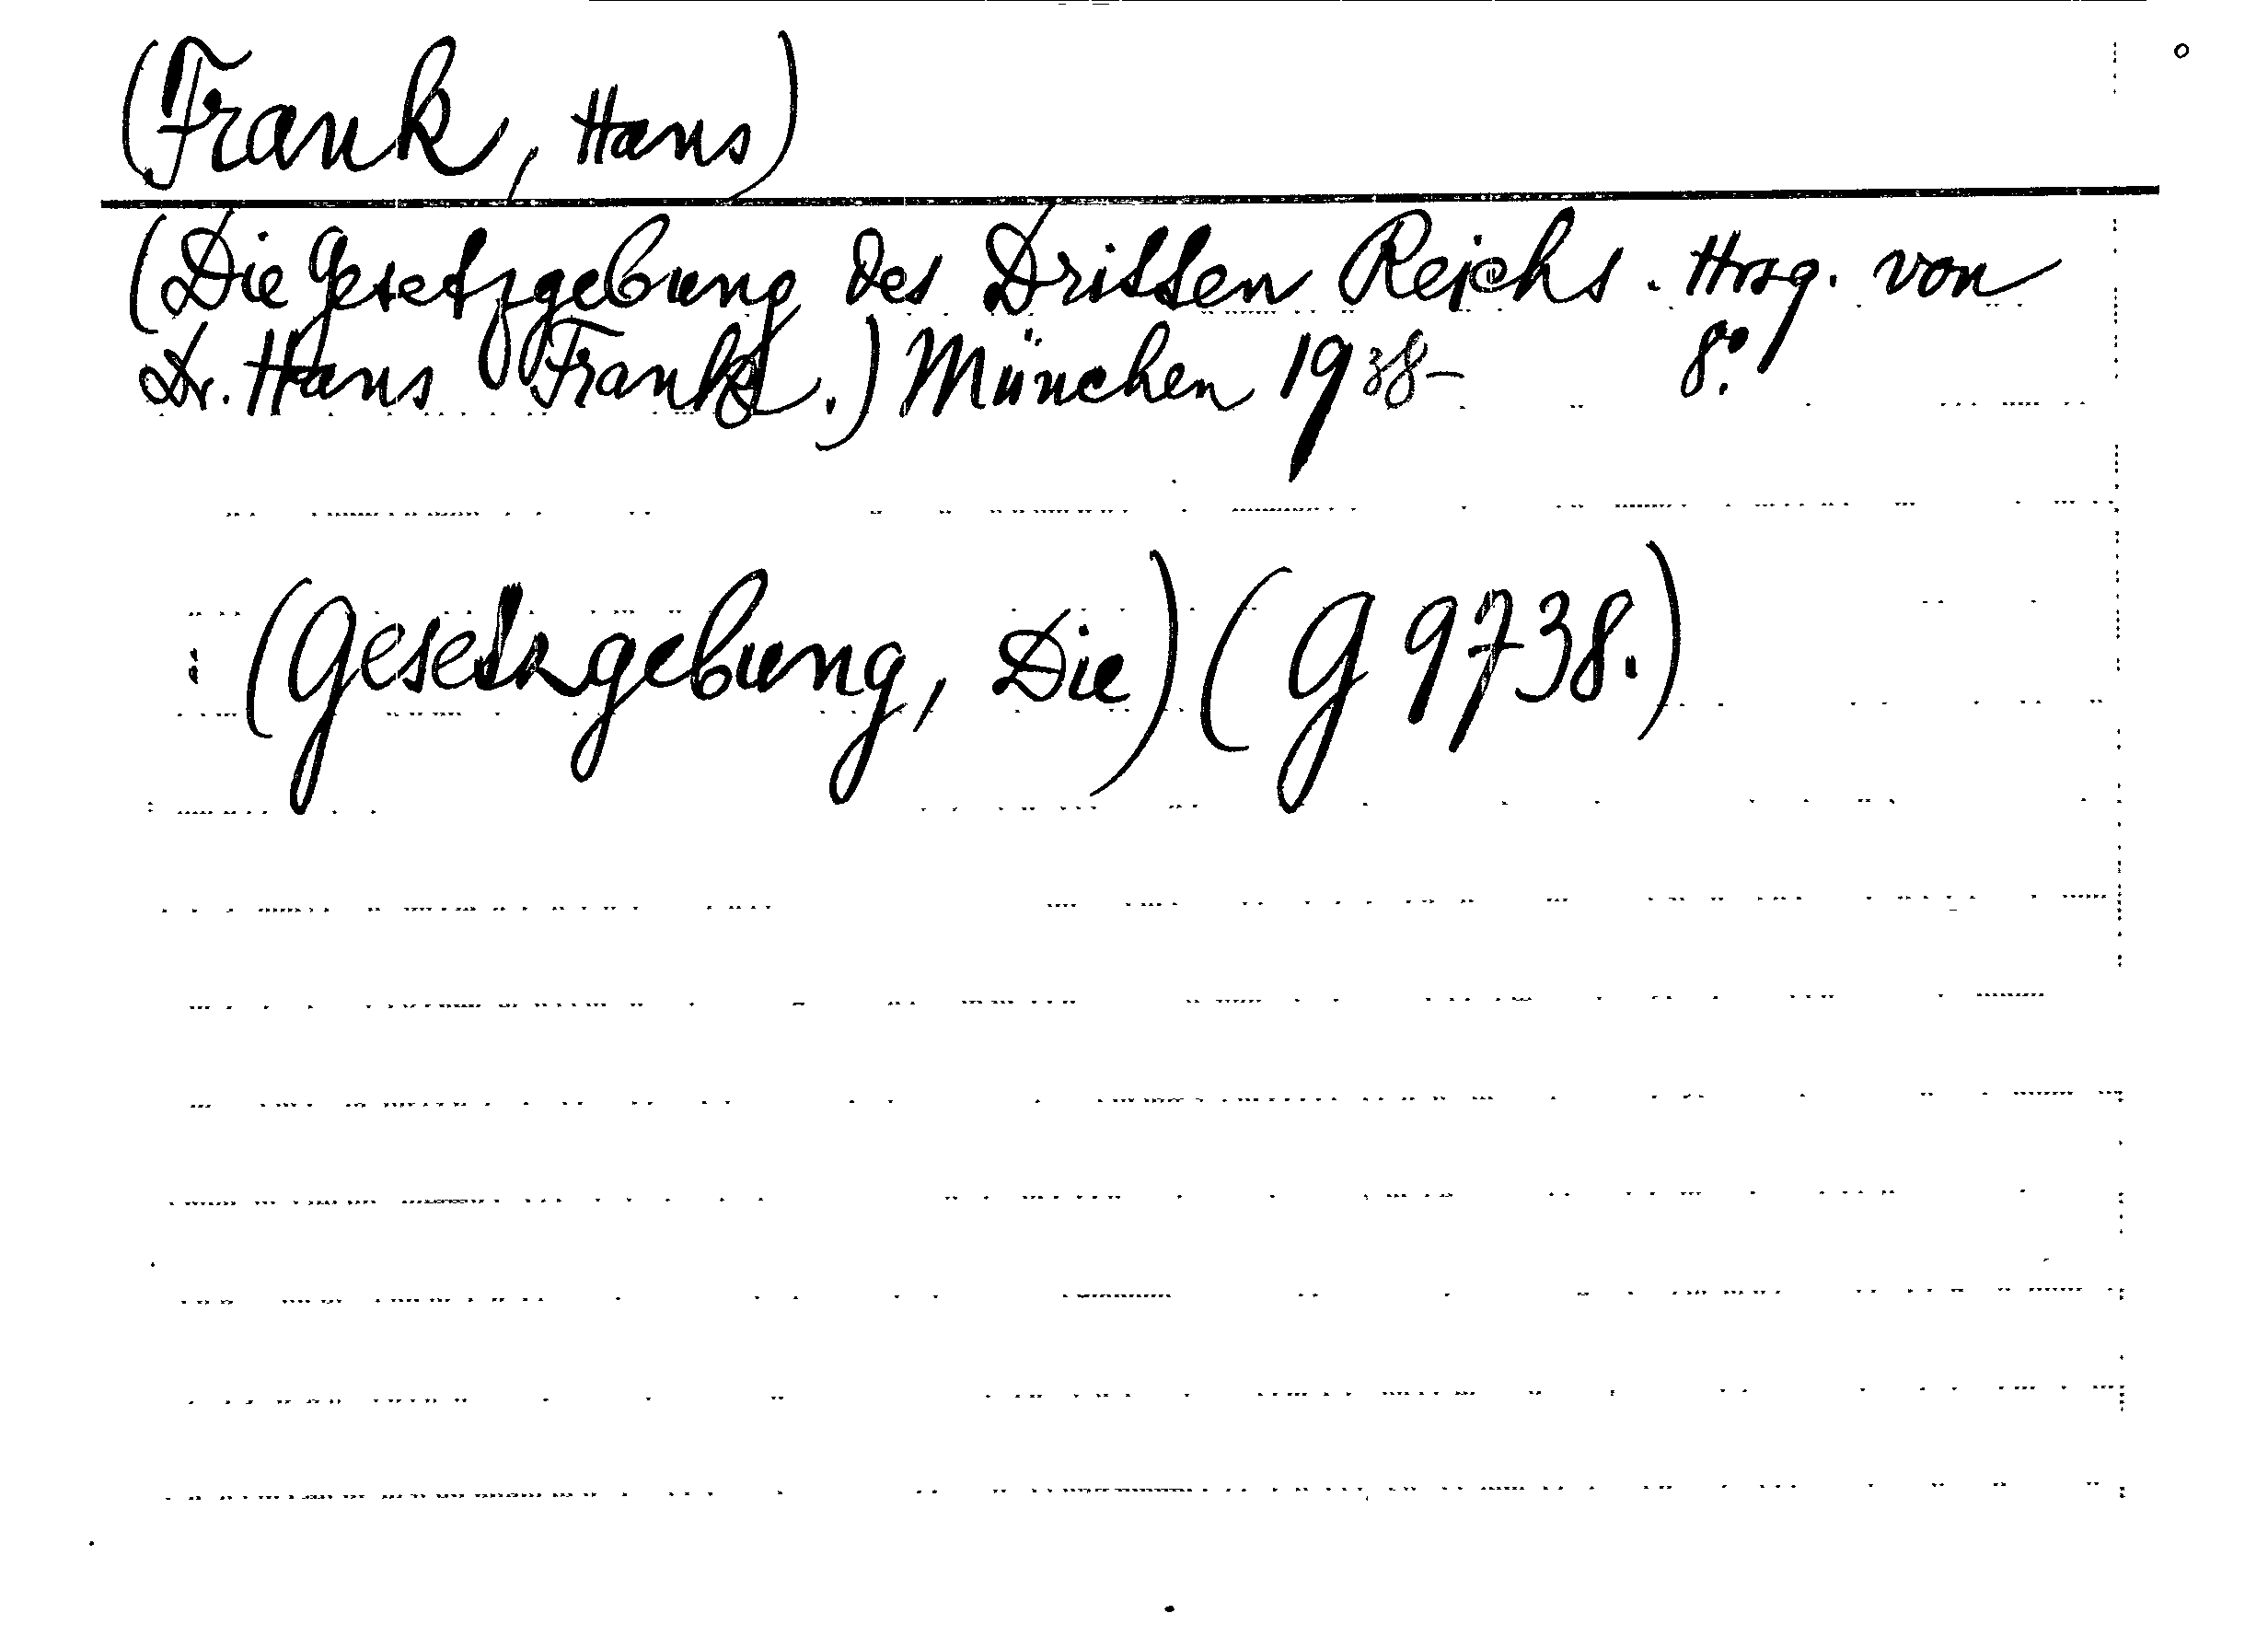 (Frank, Hans)
(Die Gesetzgebung des Dritten Reichs. Hrsg. von
Dr. Hans Frank.) München 1938- 8°.
(Gesetzgebung, Die) (G 9738.)